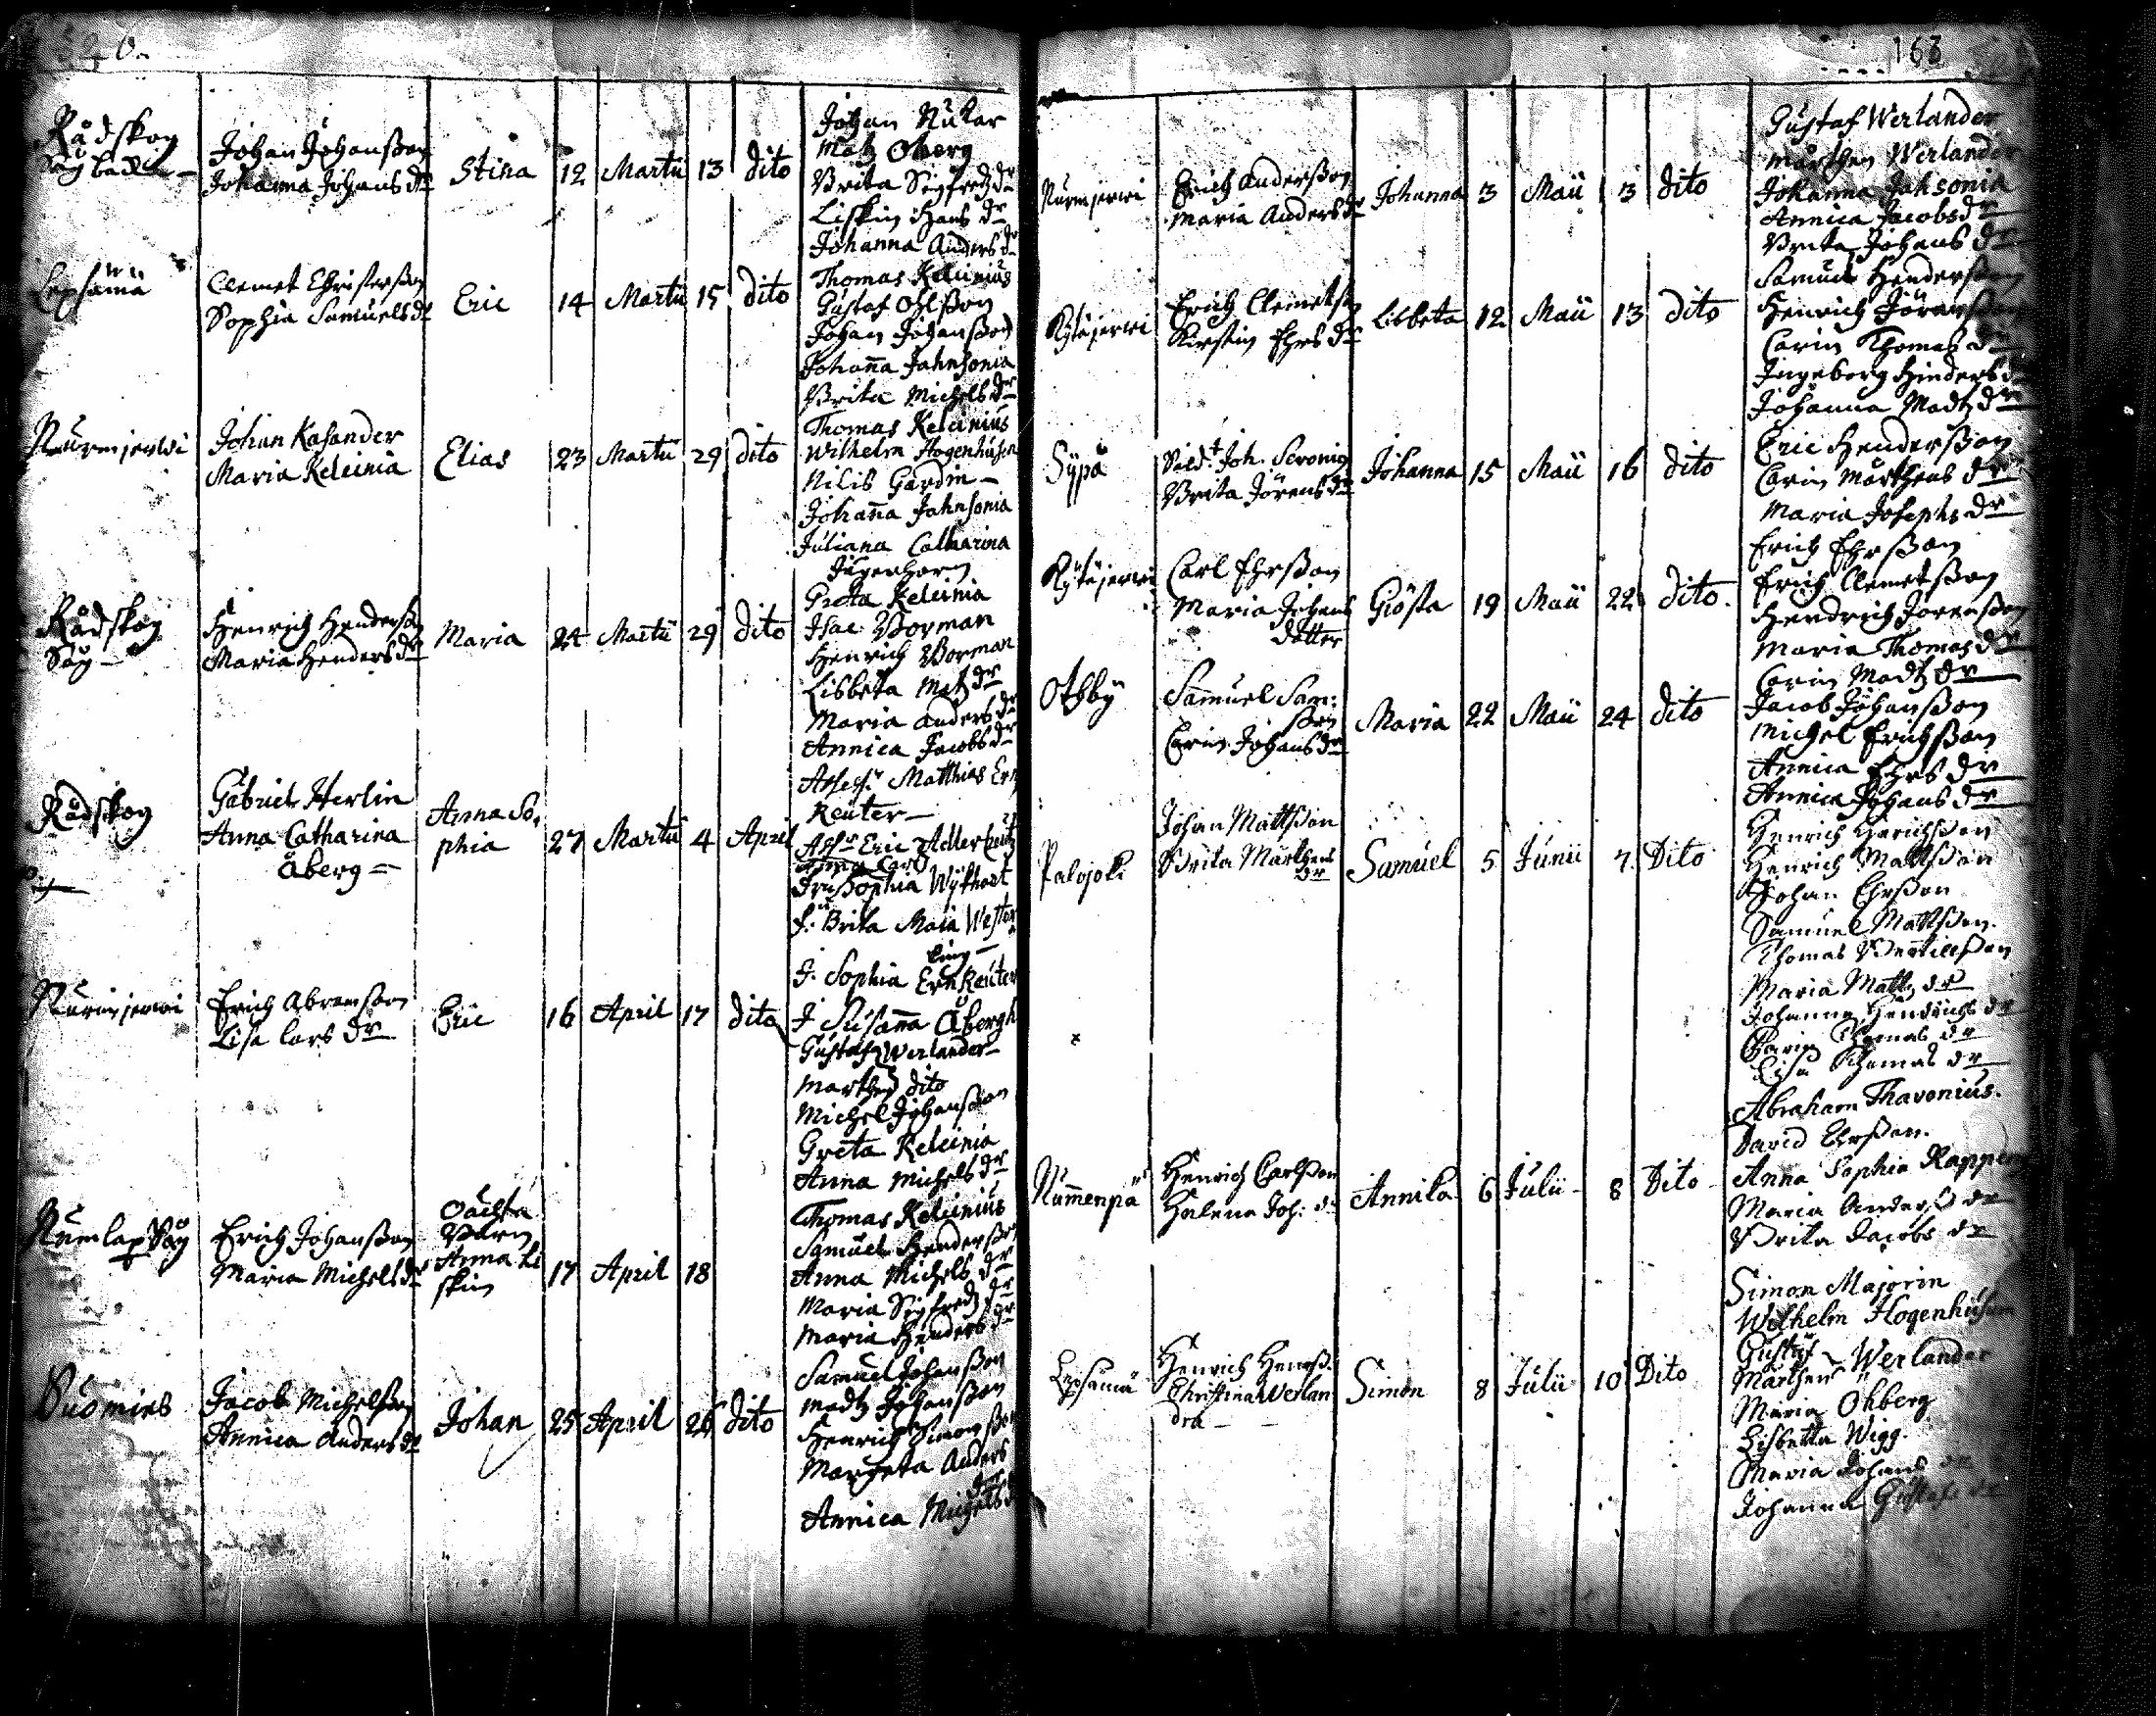 163
Rådskog
Johan Johansson
Johanna Johans dr
Stina 12 Martii 13 dito
Johan
Matz Oberg
Brita Sigfredz dr
Liskin Hans dr
Johanna Anders dr
Lepsämä
Clemet Christersson
Sophia Samuels dr
Eric 14 Martii 15 dito
Thomas Keleinius
Gustaf
Johan Johansson
Johanna Jahnsonia
Brita Michels dr
Nurmjerwi
Johan Kasander
Maria Keleinia
Elias 23 Martii 29 dito
Thomas Keleinius
Wilhelm Hogenhusen
Nilis Gardin
Johanna Jahnsonia
Juliana Catharina
Jägerhorn
Rådskog
Henrich Hendersson
Maria Henders dr
Maria 24 Martii 29 dito
Greta Keleinia
Isac Borman
Henrich Borman
Lisbeta Matz dr
Maria Anders dr
Annica Jacobs dr
Rådskog
Gabriel Herlin
Anna Catharina
Åberg
Anna So,
phia 27 Martii 4 April
Matthias Ern
Reuter
Eric Adlercreutz
Sophia
Brita Maia Wester
ling
J. Sophia Ernreuter
J Susanna Åbergh
Nurmjerwi
Erich Abramsson
Lisa Lars dr
Eric 16 April 17 dito
Gustaf Werlander
Marthen dito
Michel Johansson
Greta Keleinia
Anna Michels dr
Erich Johansson
Maria Michels dr
Oächta
Barn
Anna Li
skin 17 April 18
Thomas Keleinius
Samuel Hendersson
Anna Michels dr
Maria Sigfredz dr
Maria Henders dr
Suomies
Jacob Michelsson
Annica Anders dr
Johan 25 April 26 dito
Samuel Johansson
Madtz Johansson
Henrich Simonsson
Margeta Anders
Annica Michels dr
Nurmjerwi
Erich Andersson
Maria Anders dr
Johanna 3 Maii 3 dito
Gustaf Werlander
Mårthen Werlander
Johanna Jahsonia
Annica Jacobs dr
Brita Johans dr
Kytäjerwi
Erich Clemetss
Kirstin Ehrs dr
Lisbeta 12 Maii 13 dito
Samuel Hendersson
Henrich Jöransson
Carin Thomas dr
Ingeborg Hinders dr
Johanna Madtz dr
Sypä
Sold.t Joh.
Brita Jörens dr
Johanna 15 Maii 16 dito
Eric Hendersson
Carin Mårthens dr
Maria Josephs dr
Kytäjerwi
Carl Ehrsson
Maria Johans
dotter
Giösta 19 Maii 22 dito.
Erich Ehrsson
Erich Clemetsson
Hendrich Jörensson
Maria Thomas dr
Carin Madtz dr
Othby
Samuel Sam:
sson
Carin Johans dr
Maria 22 Maii 24 dito
Jacob Johansson
Michel Erichsson
Annica Ehrs dr
Annica Johans dr
Palojoki
Johan Mattsson
Brita Mårthens
dr
Samuel 5 Junii 7 Dito
Henrich Henrichsson
Henrich Mattsson
Johan Ehrsson
Samuel Mattsson.
Thomas Bertillsson
Maria Mattz dr
Johanna Hendrichs dr
Carin Thomas dr
Lisa Thomas dr
Nummenpä
Henrich Carlsson
Helena Joh: dr
Annika 6 Julii 8 Dito
Abraham Thavonius.
David Ehrsson.
Anna Sophia
Maria Anders dr
Brita Jacobs dr
Lepsämä
Henrich Henrss.
Christina Werlan
dra
Simon 8 Julii 10 Dito
Simon Majorin
Wilhelm Hogenhusen
Gustaf Werlander
Mårthen "
Maria Ohberg
Lisbetta Wigg.
Maria Johans dr
Johanna Gustafs dr